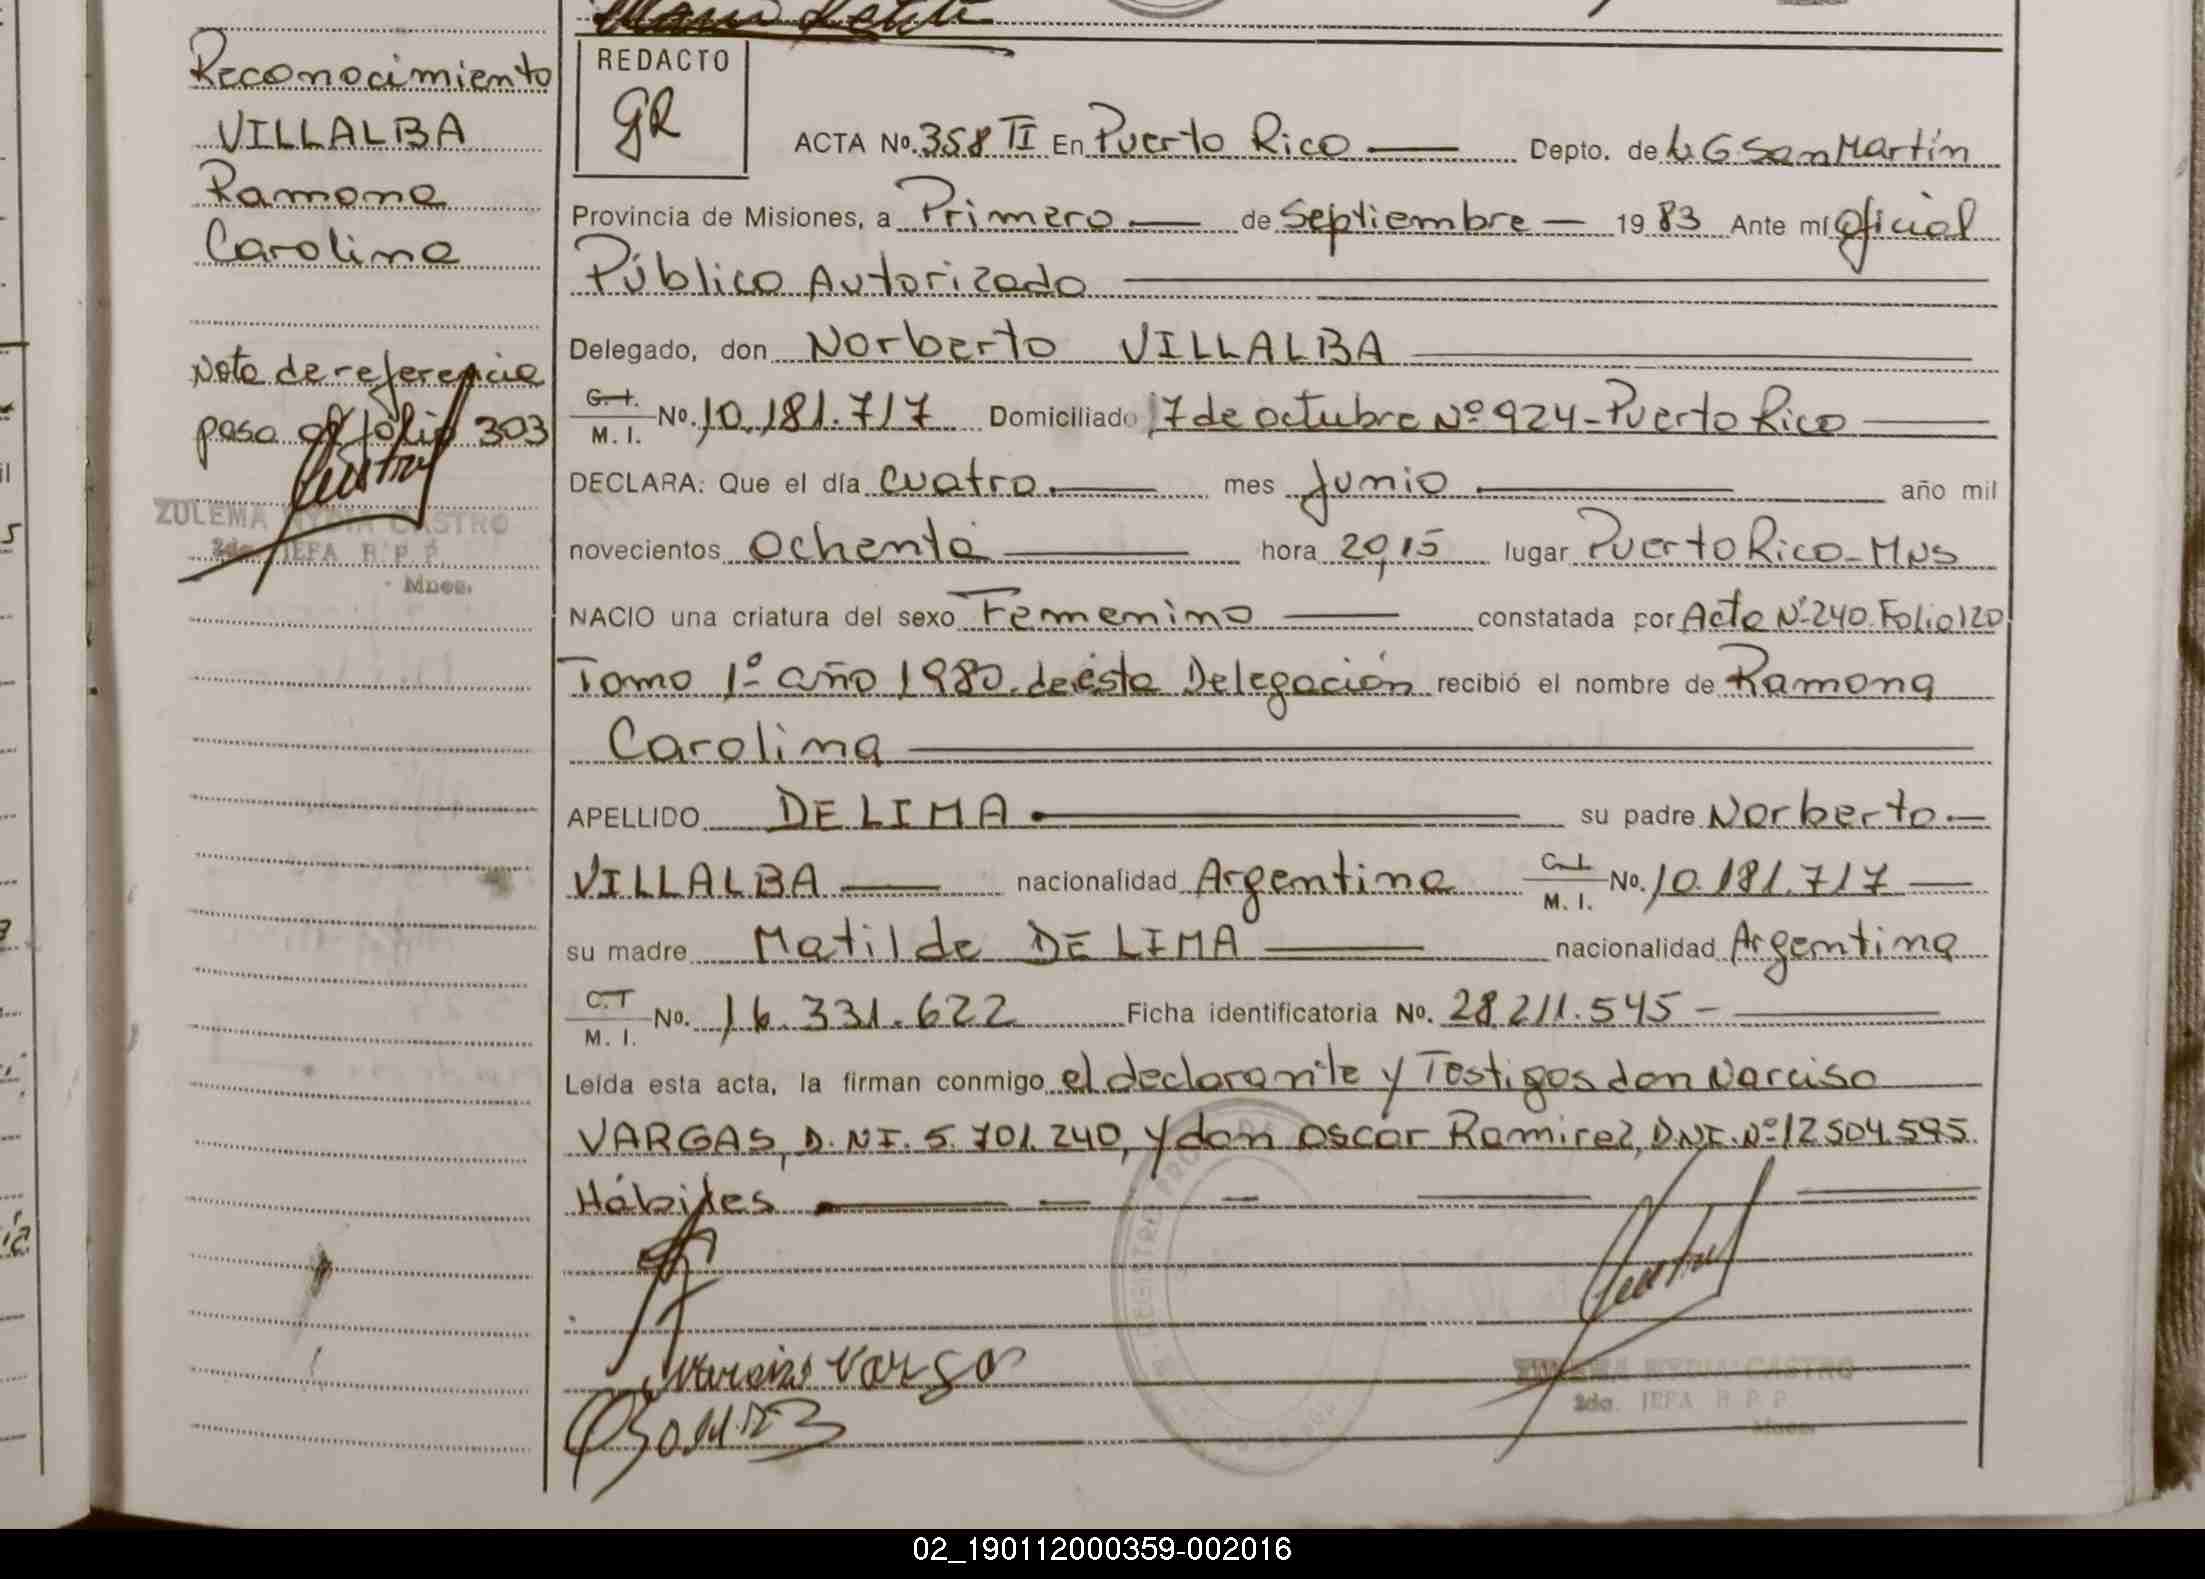 Reconocimiento
VILLALBA
Ramona
Carolina
Nota de referencia
pasa al folio 303
ZULEMA NYDIA CASTRO
2da. JEFA R P P.
Mnes.
REDACTO
gR
ACTA No. 358 TI En Puerto Rico — Depto. de L. G. San Martín
Provincia de Misiones, a Primero — de Septiembre — 19 83 Ante mí Oficial
Público Autorizado
Delegado, don Norberto VILLALBA
C. I. M. I. No. 10.181.717 Domiciliado 17 de octubre Nº 924 - Puerto Rico
DECLARA: Que el día cuatro. — mes Junio — año mil
novecientos ochenta — hora 20,15 lugar Puerto Rico - Mns
NACIO una criatura del sexo Femenino — constatada por Acta Nº 240 Folio 120
Tomo 1º año 1980. de ésta Delegación recibió el nombre de Ramona
Carolina
APELLIDO DE LIMA — su padre Norberto. —
VILLALBA — nacionalidad Argentina C. I. M. I. No. 10.181.717 —
su madre Matilde DE LIMA — nacionalidad Argentina
C. I. M. I. No. 16.331.622 Ficha identificatoria No. 28.211.545 - —
Leída esta acta, la firman conmigo el declarante y Testigos don Narciso
VARGAS, D.N.I. 5.701.240, y don Oscar Ramirez, D.N.I. Nº 12.504.595.
Hábiles — — — — —
Narciso Vargas
ZULEMA NYDIA CASTRO
2da. JEFA R P P.
Mnes.
02_190112000359-002016